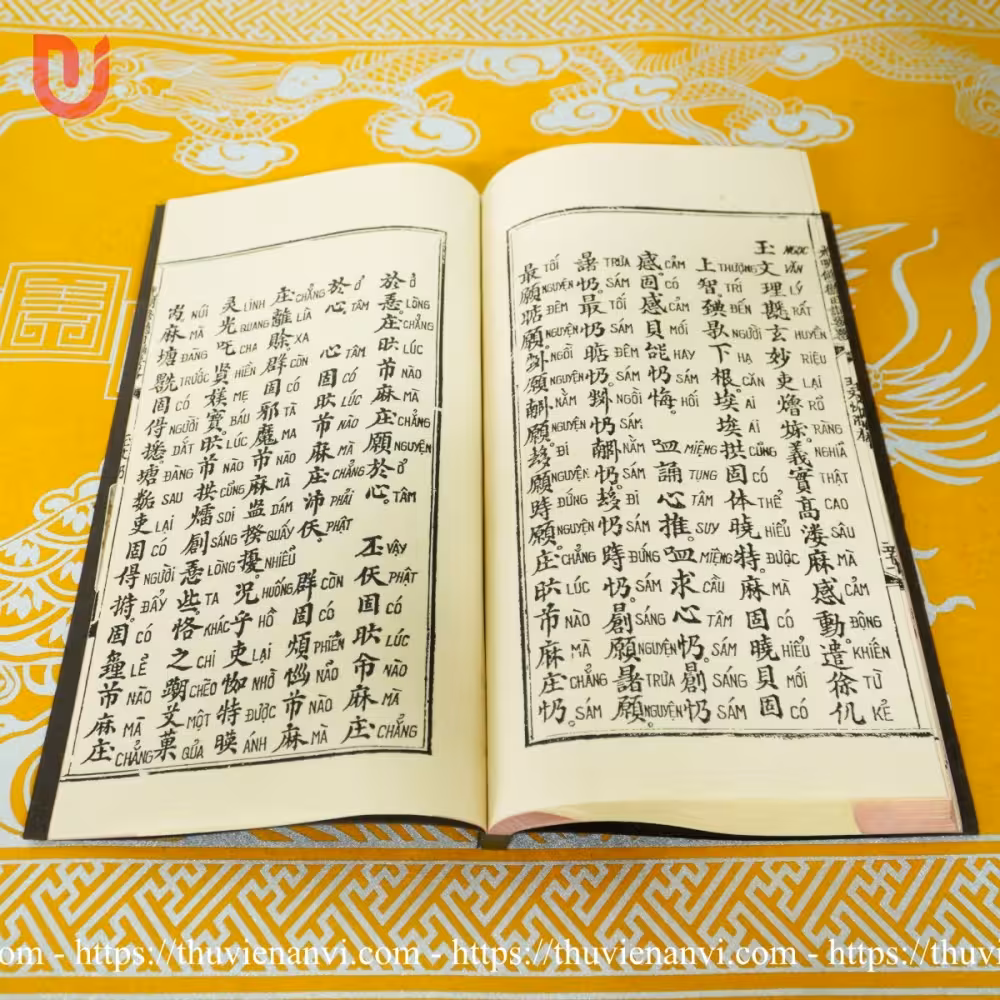 王 NGỌC 文 VĂN 理 LÝ 既 RẤT 玄 HUYỀN 妙 RIỆU 吏 LẠI 燴 RỎ RÀNG 義 NGHĨA 實 THẬT 高 CAO 溇 SÂU 麻 MÀ 感 CẢM 動 ĐỘNG 遣 KHIẾN 徐 TỪ 仉 KẺ
上 THƯỢNG 智 TRÍ ĐẾN NGƯỜI 下 HẠ 根 CĂN 埃 AI 埃 AI 拱 CŨNG 固 CÓ 体 THỂ 曉 HIỂU 特 ĐƯỢC 麻 MÀ 固 CÓ 曉 HIỂU 貝 MỚI 固 CÓ
感 CẢM 固 CÓ 感 CẢM 貝 MỚI 能 HAY 忉 SÁM 悔 HỐI 𠰘 MIỆNG 誦 TỤNG 心 TÂM 推 SUY 𠰘 MIỆNG 求 CẦU 心 TÂM 忉 SÁM SÁNG 忉 SÁM
TRƯA 忉 SÁM 最 TỐI 忉 SÁM ĐÊM 忉 SÁM NGỒI 忉 SÁM NẰM 忉 SÁM ĐI 忉 SÁM ĐỨNG 忉 SÁM SÁNG 願 NGUYỆN TRƯA 願 NGUYỆN
最 TỐI 願 NGUYỆN ĐÊM 願 NGUYỆN NGỒI 願 NGUYỆN NẰM 願 NGUYỆN ĐI 願 NGUYỆN ĐỨNG 願 NGUYỆN 庄 CHẲNG LÚC 芇 NÀO 麻 MÀ 庄 CHẲNG 忉 SÁM
於 Ở LÒNG 庄 CHẲNG LÚC 芇 NÀO 麻 MÀ 庄 CHẲNG 願 NGUYỆN 於 Ở 心 TÂM 丕 VẬY PHẬT 固 CÓ LÚC NÀO 麻 MÀ 庄 CHẲNG
於 Ở 心 TÂM 心 TÂM 固 CÓ LÚC 芇 NÀO 麻 MÀ 庄 CHẲNG 沛 PHẢI PHẬT 群 CÒN 固 CÓ 煩 PHIỀN 惱 NÃO 芇 NÀO 麻 MÀ
庄 CHẲNG 離 LÌA 賒 XA 群 CÒN 固 CÓ 邪 TÀ 魔 MA 芇 NÀO 麻 MÀ DÁM 揆 QUẤY 擾 NHIỄU 况 HUỐNG 乎 HỒ 吏 LẠI NHỜ 特 ĐƯỢC 暎 ÁNH
灵 LINH 光 QUANG 吒 CHA 賢 HIỀN 媄 MẸ 寶 BÁU LÚC 芇 NÀO 拱 CŨNG SOI 創 SÁNG LÒNG 些 TA 恪 KHÁC 之 CHI CHÈO MỘT 菓 QỦA
NÚI 麻 MÀ 塘 ĐÀNG TRƯỚC 固 CÓ NGƯỜI DẮT 塘 ĐÀNG SAU 吏 LẠI 固 CÓ NGƯỜI ĐẨY 固 CÓ LẼ 芇 NÀO 麻 MÀ 庄 CHẲNG
.com - https://thuvienanvi.com - https://thuvienanvi.com - https://thuvi